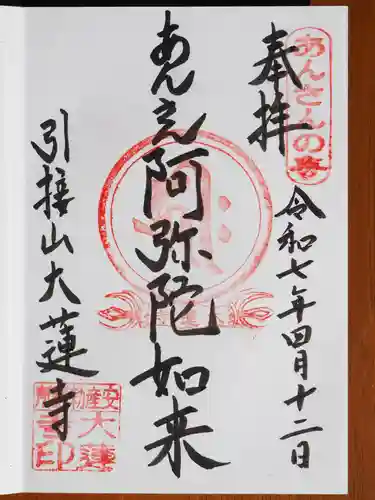 奉拝
あんさんの寺
令和七年四月十二日
あんえ阿弥陀如来
引接山大蓮寺